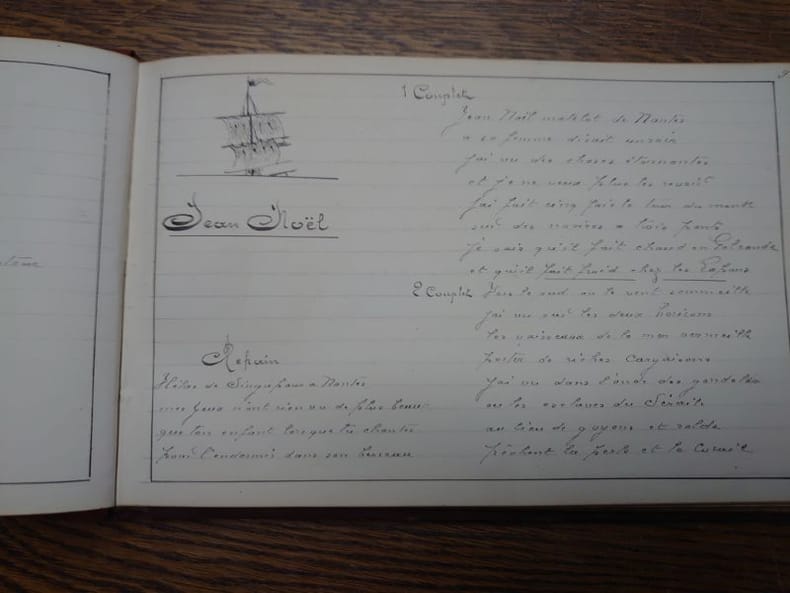 Jean Noël
Refrain
Hélas de Singapour a Nantes
mes yeux n'ont rien vu de plus beau
que ton enfant lorsque tu chantes
pour l'endormir dans son berceau
1 Couplet
Jean Noël matelot de Nantes
a sa femme disait un soir
j'ai vu des choses étonnantes
et je ne veux plus les revoir
j'ai fait cinq fois le tour du monde
sur des navires a trois ponts
je sais qu'il fait chaud en
et qu'il fait froid chez les Lapons
2 Couplet
Vers le sud ou le vent sommeille
j'ai vu sur les deux horizons
les vaisseaux de la mer vermeille
porter de riches cargaisons
j'ai vu dans l'onde des gondoles
ou les esclaves du Sérail
au lieu de et
pêchent la perle et le Corail